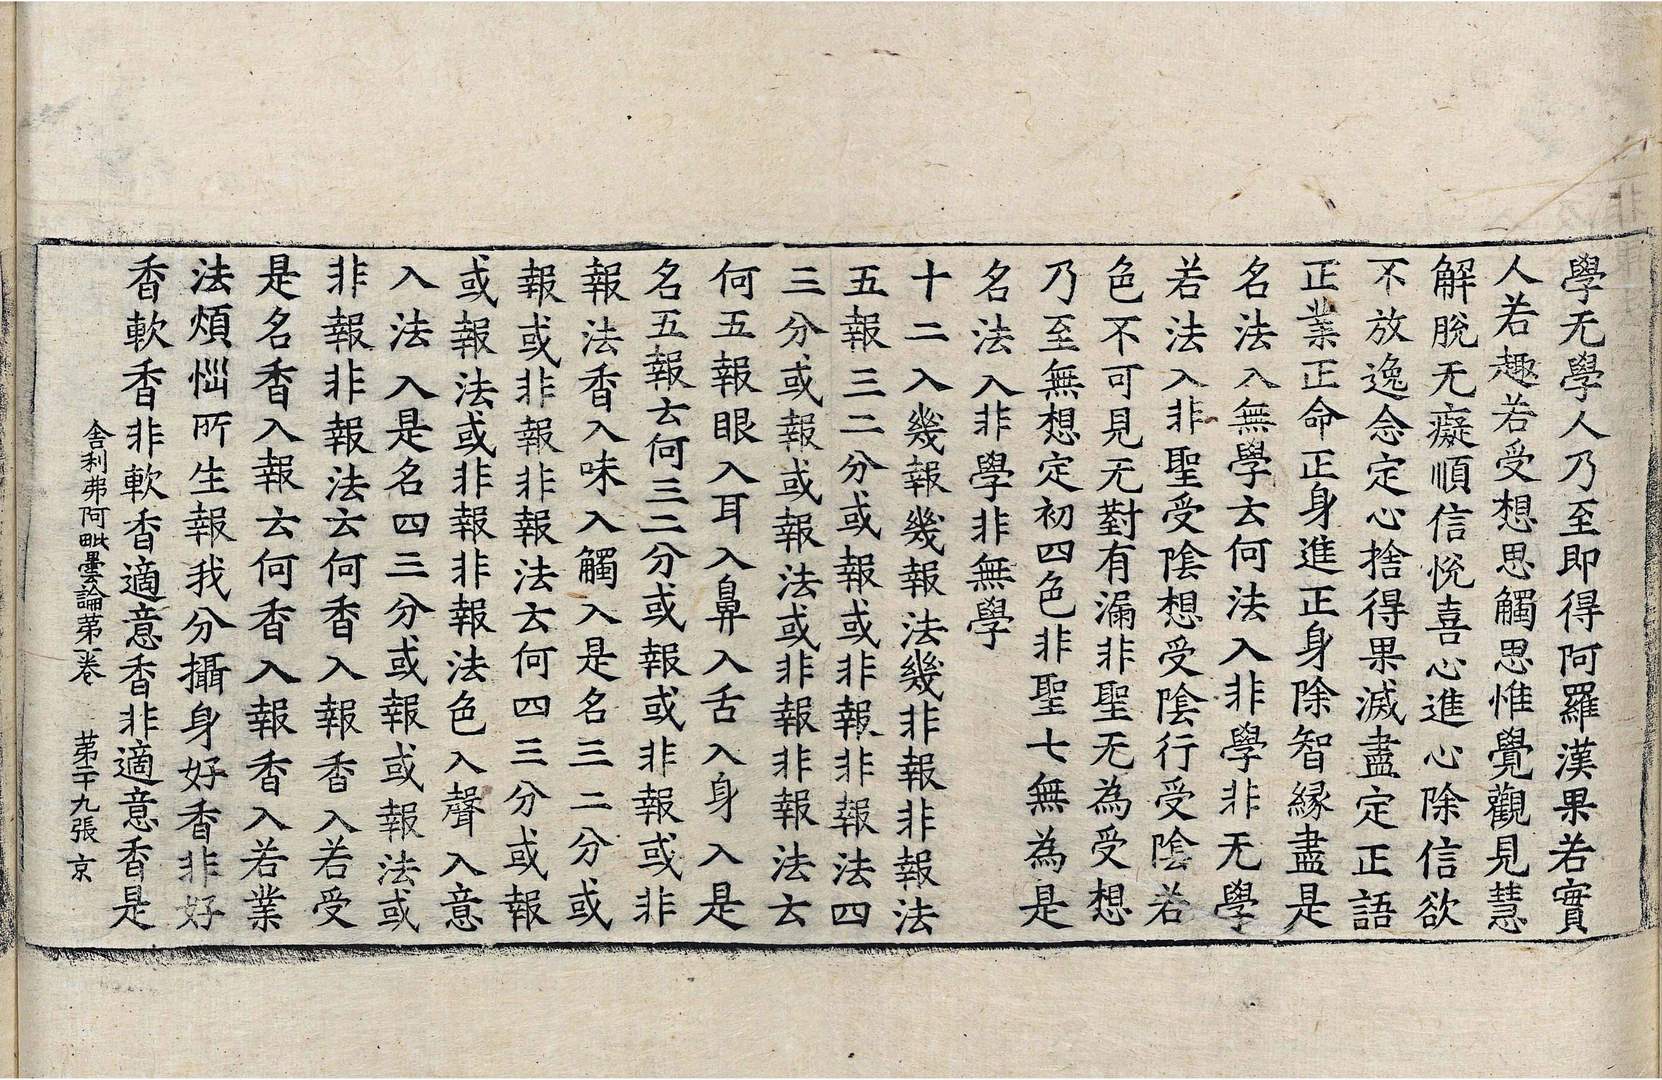 學无學人乃至即得阿羅漢果若實
人若趣若受想思觸思惟覺觀見慧
解脫无癡順信悅喜心進心除信欲
不放逸念定心捨得果滅盡定正語
正業正命正身進正身除智緣盡是
名法入無學去何法入非學非无學
若法入非聖受陰想受陰行受陰若
色不可見无對有漏非聖无為受想
乃至無想定初四色非聖七無為是
名法入非學非無學
十二入幾報幾報法幾非報非報法
五報三二分或報或非報非報法四
三分或報或報法或非報非報法去
何五報眼入耳入鼻入舌入身入是
名五報去何三二分或報或非報或非
報法香入味入觸入是名三二分或
報或非報非報法去何四三分或報
或報法或非報非報法色入聲入意
入法入是名四三分或報或報法或
非報非報法去何香入報香入若受
是名香入報去何香入報香入若業
法煩惱所生報我分攝身好香非好
香軟香非軟香適意香非適意香是
舍利弗阿毗曇論第一卷 第二十九張 京